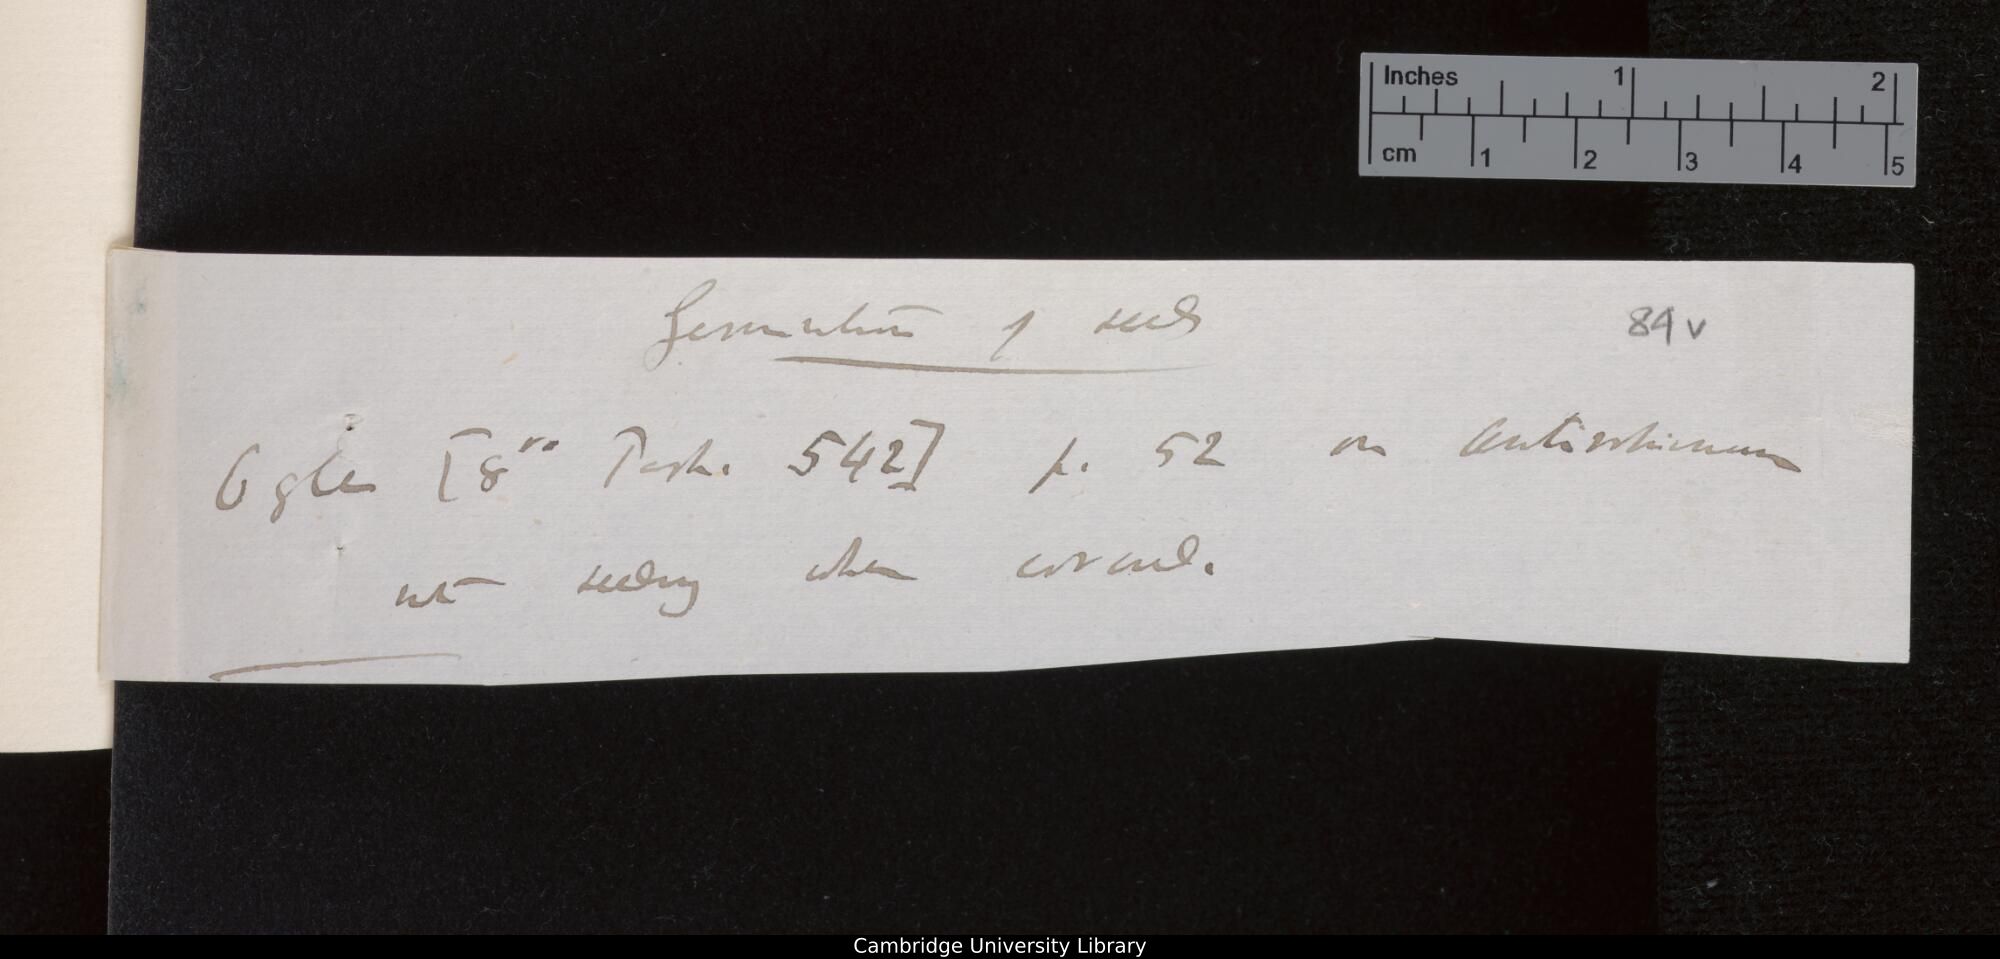 Inches 1 2
cm 1 2 3 4 5
Germination of seeds
89 v
Ogle [8vo Pamph. 542] p. 52 on Antirrhinum
not seeding when covered.
Cambridge University Library